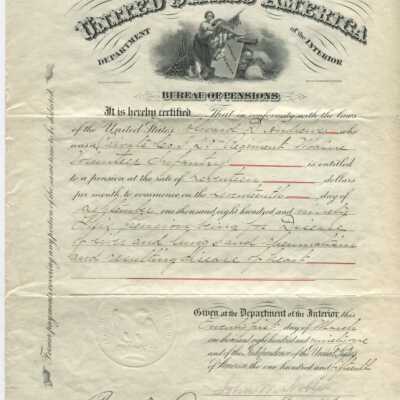 UNITED STATES OF AMERICA
DEPARTMENT of the INTERIOR
BUREAU OF PENSIONS
It is hereby certified That in conformity with the laws
of the United States Edward who
was a 21st Regiment Maine
Volunteer Infantry is entitled
to a pension at the rate of seventeen dollars
per month to commence on the seventeenth day of
September one thousand eight hundred and ninety
This pension being for Disease
of and lungs and rheumatism
and resulting disease of heart
Given at the Department of the Interior this
Twenty first day of March
one thousand eight hundred and ninety one
and of the Independence of the United States
of America the one hundred and fifteenth
Former payments covering any portion of the same time to be deducted.